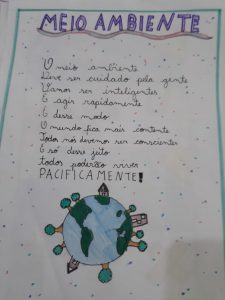 MEIO AMBIENTE
O meio ambiente
Deve ser cuidado pela gente
Vamos ser inteligentes
E agir rapidamente
E desse modo
O mundo fica mais contente
Todos nós devemos ser conscientes
E só desse jeito
todos poderão viver
PACIFICAMENTE!